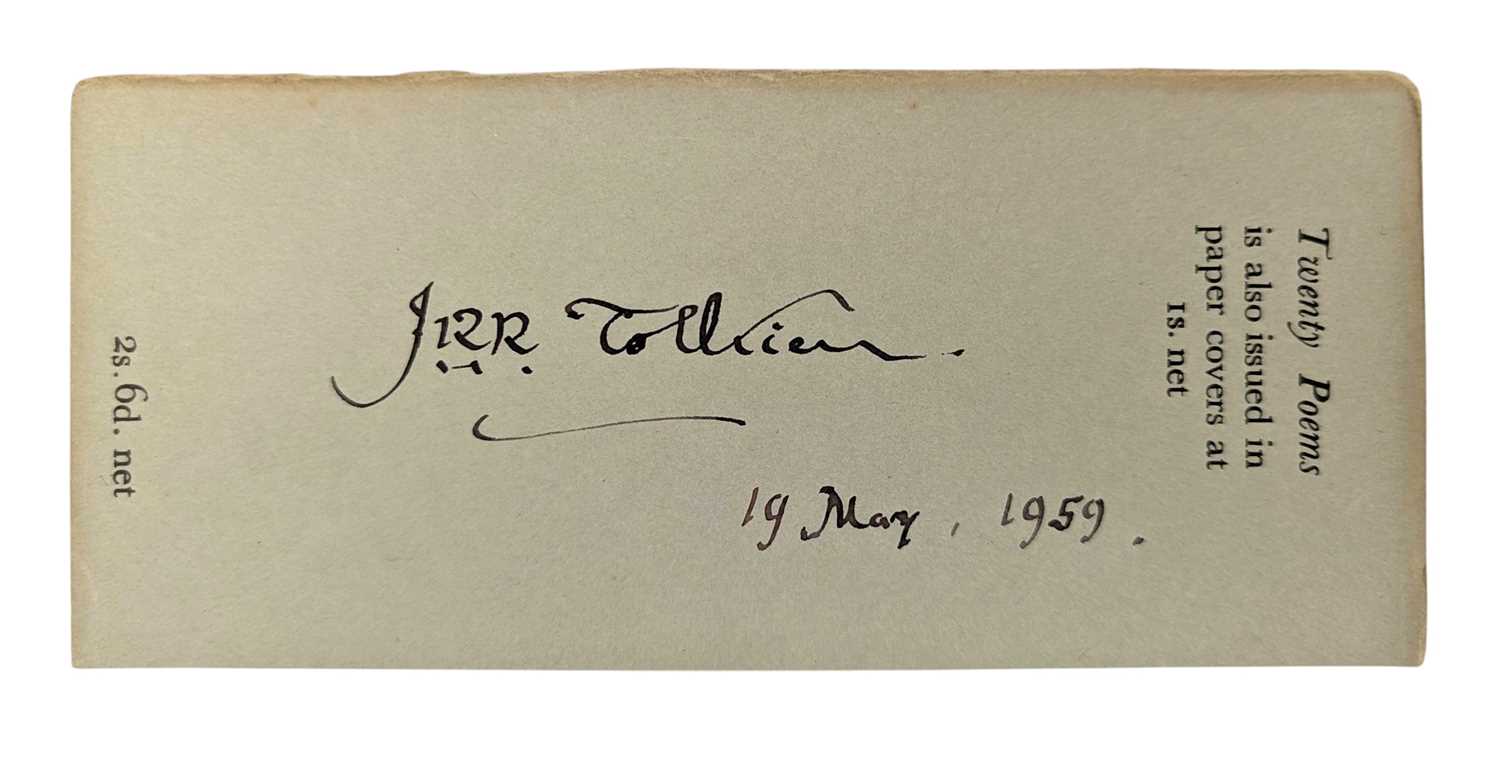 JRR Tolkien.
19 May, 1959.
Twenty Poems
is also issued in
paper covers at
1s. net
2s. 6d. net